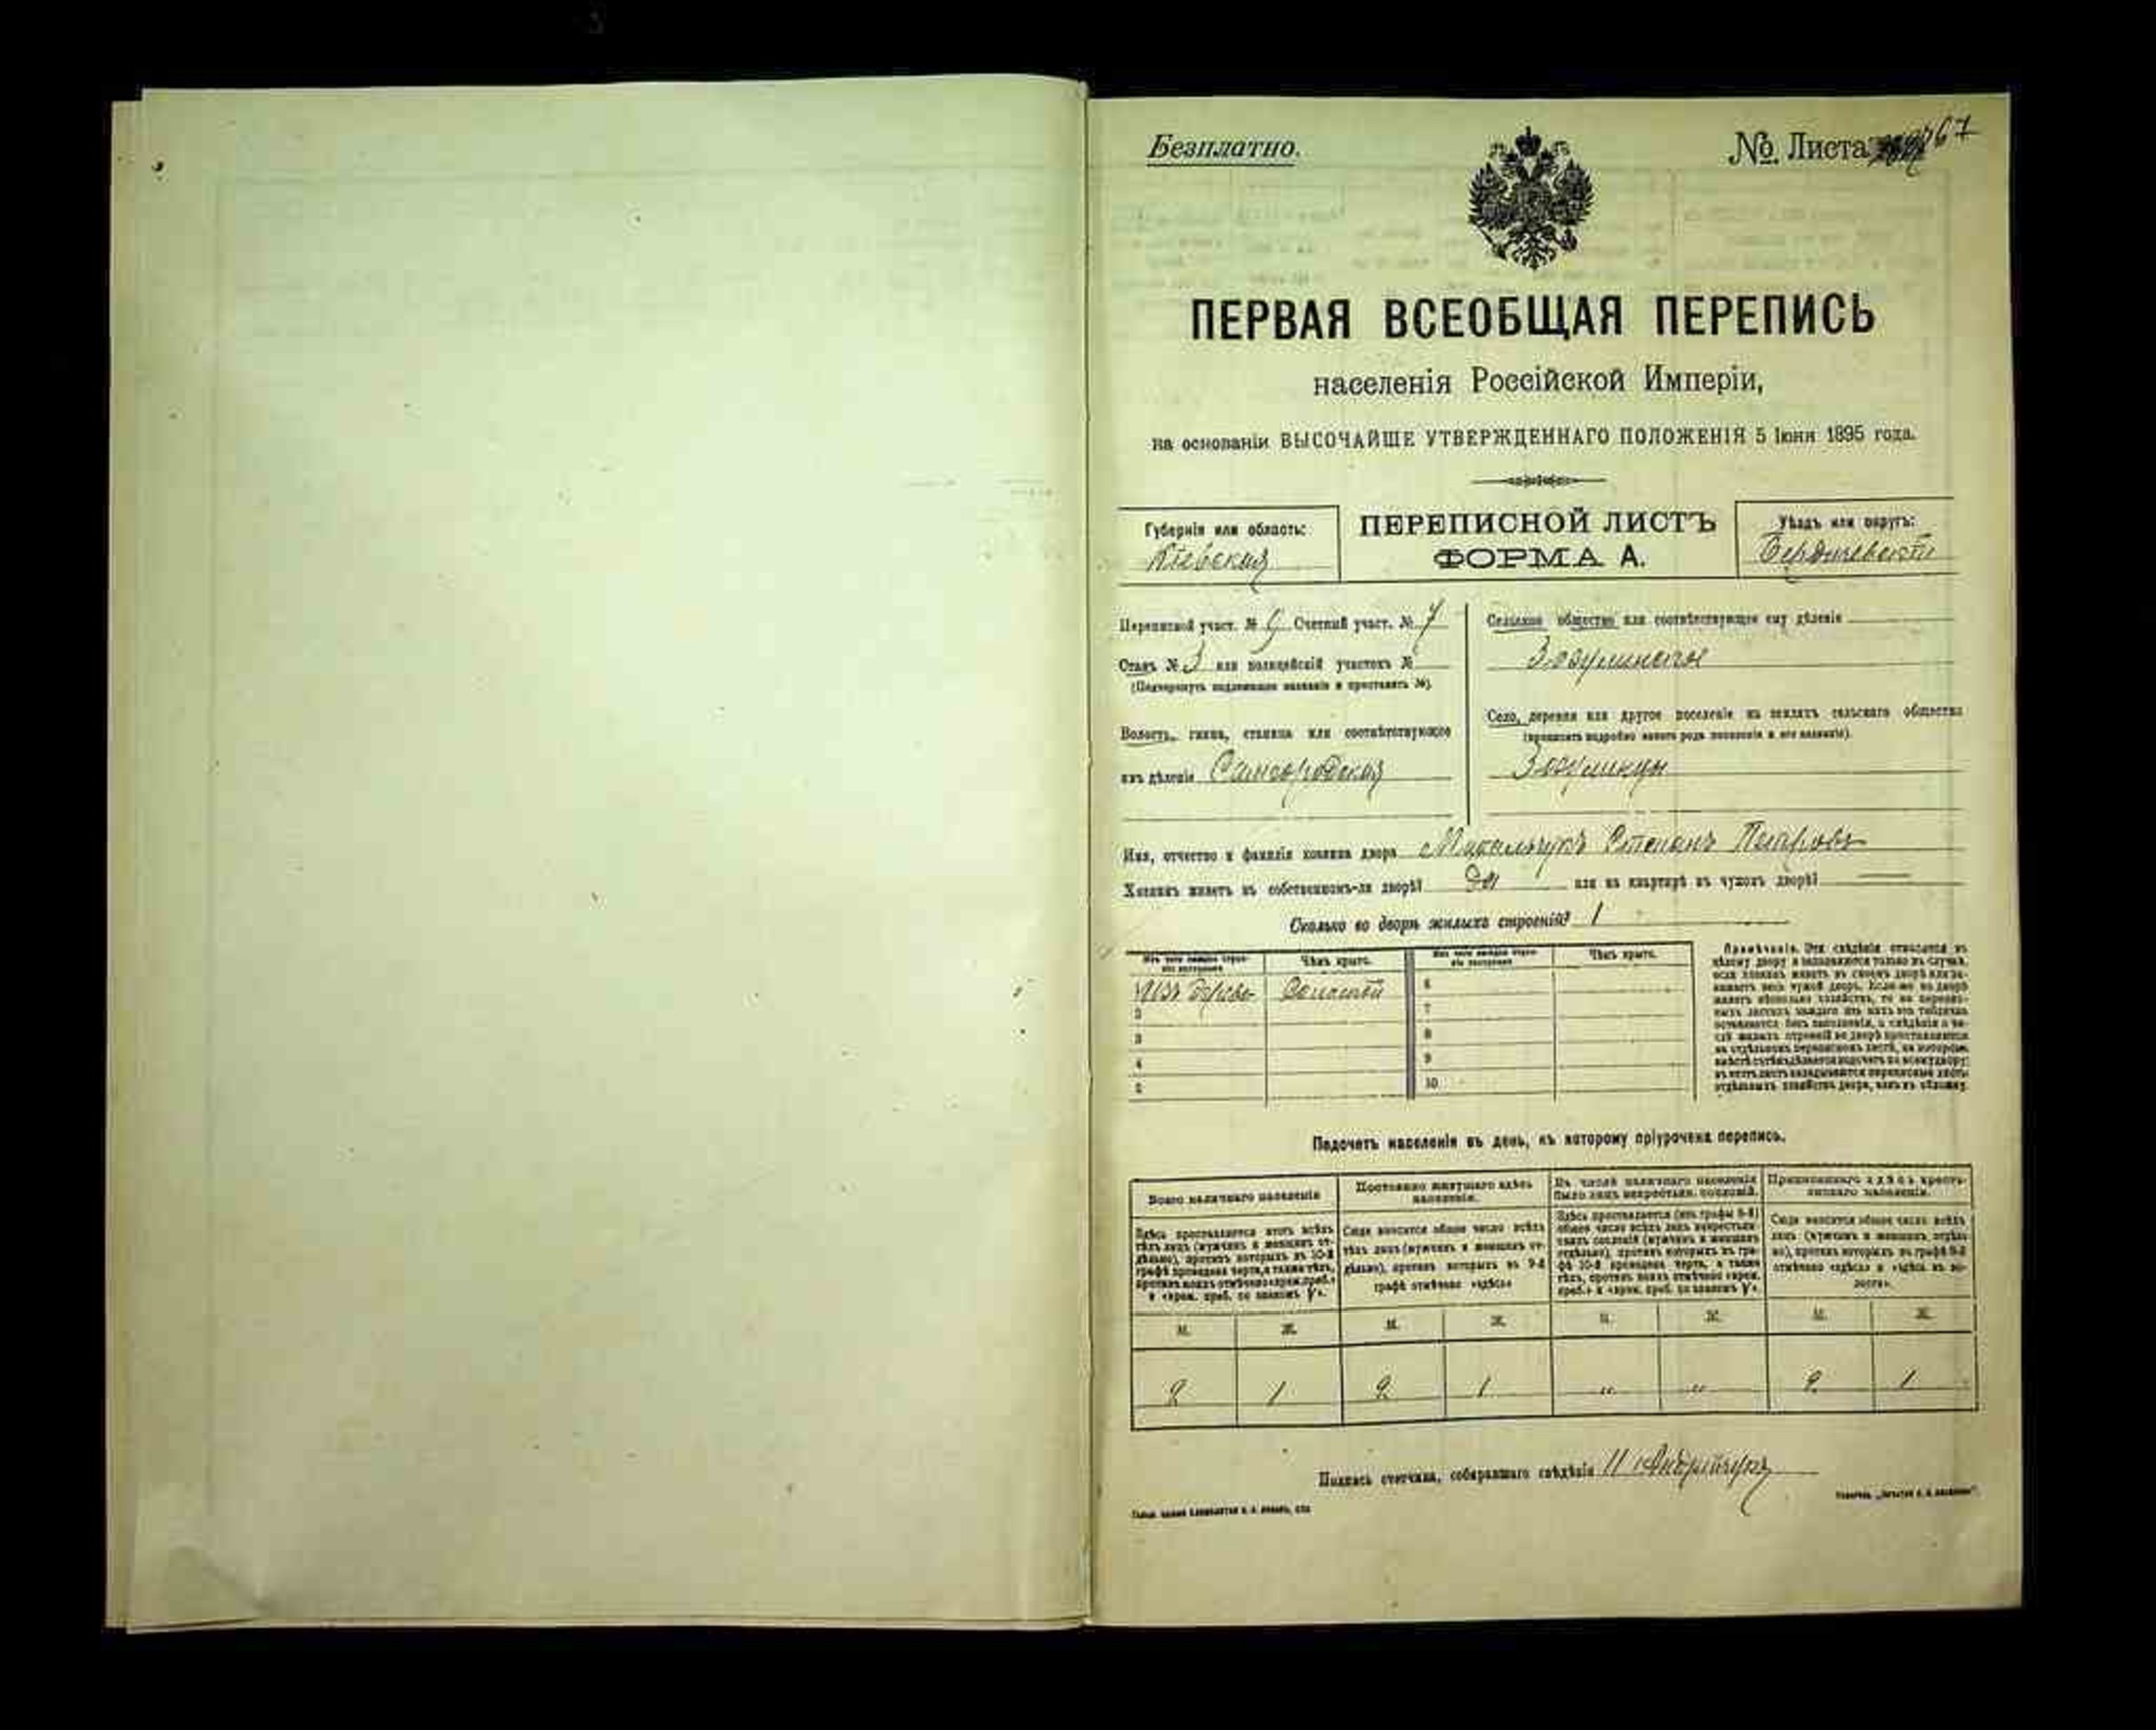 Безплатно.
№ Листа 67
ПЕРВАЯ ВСЕОБЩАЯ ПЕРЕПИСЬ
населенія Россійской Имперіи,
на основаніи ВЫСОЧАЙШЕ УТВЕРЖДЕННАГО ПОЛОЖЕНІЯ 5 Іюня 1895 года.
Губернія или область:
Кіевская
ПЕРЕПИСНОЙ ЛИСТЪ
ФОРМА А.
Уѣздъ или округъ:
Бердичевскій
Переписной участ. № 9 Счетный участ. № 7
Станъ № 3 или полицейскій участокъ №
(Подчеркнуть надлежащее названіе и проставить №).
Волость, гмина, станица или соотвѣтствующее
имъ дѣленіе Самгородская
Сельское общество или соотвѣтствующее ему дѣленіе
Село, деревня или другое поселеніе на земляхъ сельскаго общества
(прописать подробно какого рода поселеніе и его названіе).
Зозулинцы
Имя, отчество и фамилія хозяина двора Михальчукъ Степанъ Петровъ
Хозяинъ живетъ въ собственномъ-ли дворѣ? да или на квартирѣ въ чужомъ дворѣ? —
Сколько во дворѣ жилыхъ строеній? 1
Изъ чего каждое строеніе построено
Чѣмъ крыто.
Изъ чего каждое строеніе построено
Чѣмъ крыто.
1 Изъ дерева Соломой 6
2 7
3 8
4 9
5 10
Примѣчаніе. Эти свѣдѣнія относятся къ
цѣлому двору и заполняются только въ случаѣ,
если хозяинъ живетъ въ своемъ дворѣ или за-
нимаетъ весь чужой дворъ. Если-же во дворѣ
живетъ нѣсколько хозяйствъ, то на перепис-
ныхъ листахъ каждаго изъ нихъ эта табличка
оставляется безъ заполненія, а свѣдѣнія о чи-
слѣ жилыхъ строеній во дворѣ проставляются
на отдѣльномъ переписномъ листѣ, на которомъ
вмѣстѣ съ тѣмъ дѣлается подсчетъ по всему двору;
въ этотъ листъ вкладываются переписные листы
отдѣльныхъ хозяйствъ двора, какъ въ обложку.
Подсчетъ населенія въ день, къ которому пріурочена перепись.
Всего наличнаго населенія
Постоянно живущаго здѣсь
населенія.
Въ числѣ наличнаго населенія
было лицъ некрестьян. сословій.
Приписаннаго здѣсь кресть-
янскаго населенія.
Здѣсь проставляется итогъ всѣхъ
тѣхъ лицъ (мужчинъ и женщинъ от-
дѣльно), противъ которыхъ въ 10-й
графѣ проведена черта, а также тѣхъ,
противъ коихъ отмѣчено «врем. преб.»
и «врем. преб. со знакомъ V».
Сюда вносится общее число всѣхъ
тѣхъ лицъ (мужчинъ и женщинъ от-
дѣльно), противъ которыхъ въ 9-й
графѣ отмѣчено «здѣсь»
Здѣсь проставляется (изъ графы 6-й)
общее число всѣхъ лицъ некрестьян-
скихъ сословій (мужчинъ и женщинъ
отдѣльно), противъ которыхъ въ гра-
фѣ 10-й проведена черта, а также
тѣхъ, противъ коихъ отмѣчено «врем.
преб.» и «врем. преб. со знакомъ V».
Сюда вносится общее число всѣхъ
лицъ (мужчинъ и женщинъ отдѣль-
но), противъ которыхъ въ графѣ 8-й
отмѣчено «здѣсь» и «здѣсь въ во-
лости».
М. Ж. М. Ж. М. Ж. М. Ж.
2 1 2 1 " " 2 1
Подпись счетчика, собиравшаго свѣдѣнія Андрійчукъ